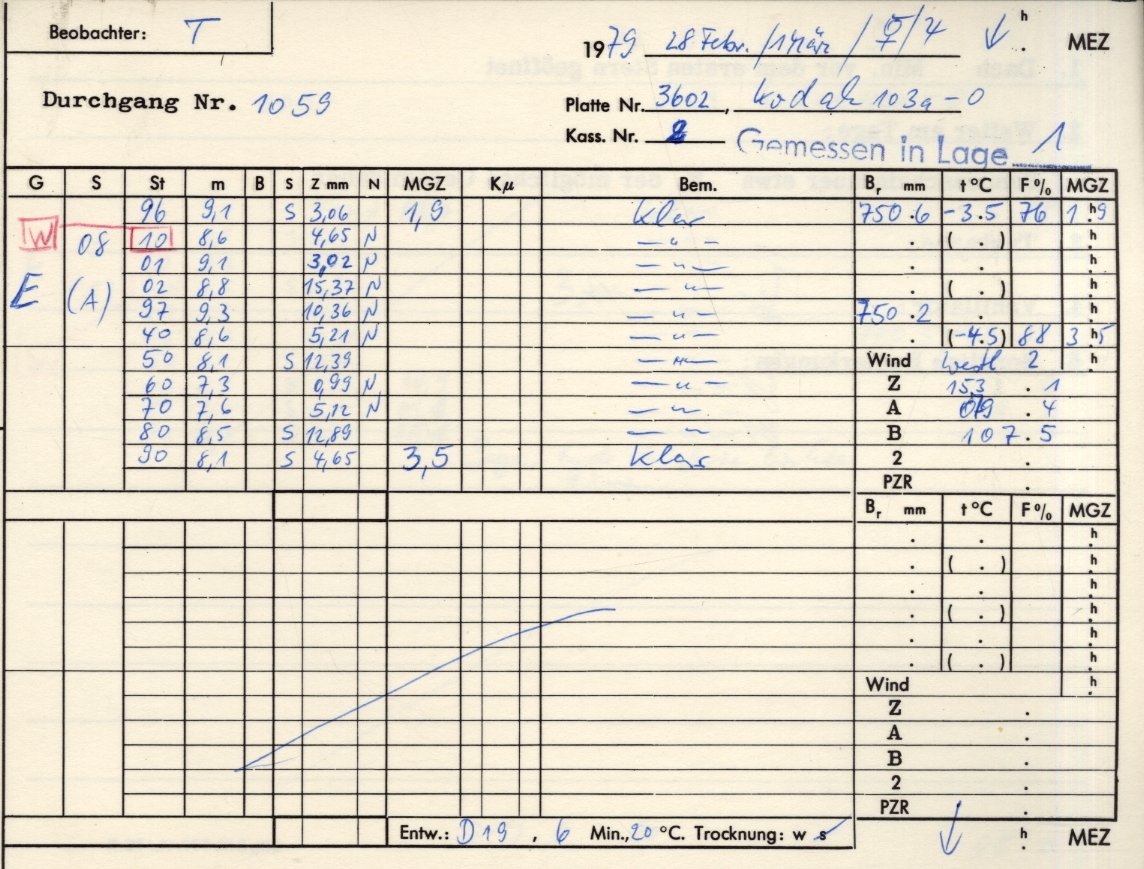 Beobachter: T
1979 28 Febr. /1 März / ☿/4 ↓ h . MEZ
Durchgang Nr. 1059
Platte Nr. 3602, Kodak 103a-0
Kass. Nr. 2 Gemessen in Lage 1
G S St m B S Z mm N MGZ K,μ Bem. Br mm t°C F% MGZ
96 9,1 S 3,06 1,9 klar 750.6 -3.5 76 1 h9
W 08 10 8,6 4,65 N —"— . ( . ) h
01 9,1 3,02 N —"— . . h
E (A) 02 8,8 15,37 N —"— . ( . ) h
97 9,3 10,36 N —"— 750.2 . h
40 8,6 5,21 N —"— (-4.5) 88 3 h5
50 8,1 S 12,39 —"— Wind westl 2 . h
60 7,3 0,99 N —"— Z 153 . 1
70 7,6 5,12 N —"— A . 4
80 8,5 S 12,89 —"— B 107.5
90 8,1 S 4,65 3,5 klar 2 .
PZR .
Br mm t°C F% MGZ
. . h
. ( . ) h
. . h
. ( . ) h
. . h
. ( . ) h
Wind h
Z .
A .
B .
2 .
PZR .
Entw.: D19 , 6 Min.,20 °C. Trocknung: w s ↓ h . MEZ